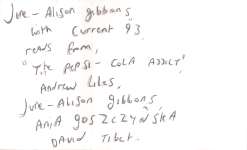 June-Alison Gibbons
with Current 93
reads from,
"The PEPSI-COLA ADDICT",
Andrew Liles,
June-Alison Gibbons,
ANIA GOSZCZYŃSKA
DAVID TIBET.